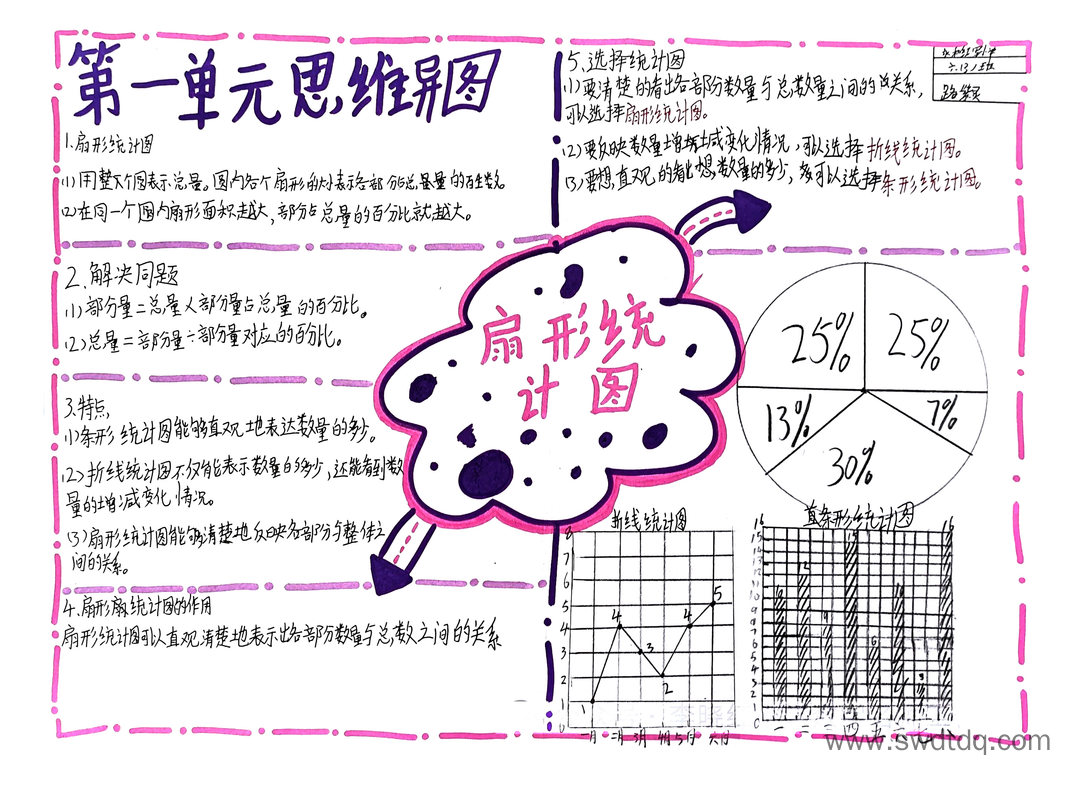 第一单元思维导图
1.扇形统计图
(1)用整个圆表示总量。圆内各个扇形的大小表示各部分占总量的百分数。
(2)在同一个圆内扇形面积越大,部分占总量的百分比就越大。
2.解决问题
(1)部分量=总量×部分量占总量的百分比。
(2)总量=部分量÷部分量对应的百分比。
3.特点
(1)条形统计图能够直观地表达数量的多少。
(2)折线统计图不仅能表示数量的多少,还能看到数
量的增减变化情况。
(3)扇形统计图能够清楚地反映各部分与整体之
间的关系。
4.扇形统计图的作用
扇形统计图可以直观清楚地表示出各部分数量与总数之间的关系
5.选择统计图
(1)要清楚的看出各部分数量与总数量之间的关系,
可以选择扇形统计图。
(2)要反映数量增减变化情况,可以选择折线统计图。
(3)要想直观的看出数量的多少,可以选择条形统计图。
扇形统
计图
25% 25%
13% 7%
30%
折线统计图
8
7
6
5
4
3
2
1
0
1 4 3 2 4 5
一月 二月 3月 4月 5月 六月
条形统计图
16
15
14
13
12
11
10
9
8
7
6
5
4
3
2
1
0
www.swdtdq.com